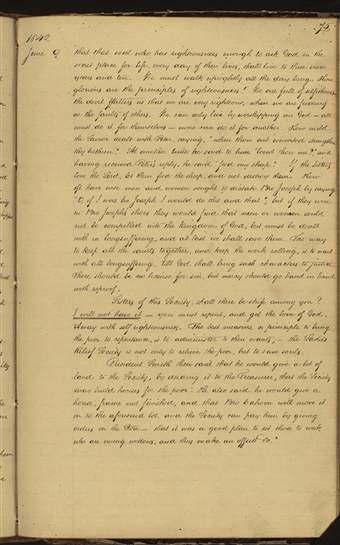 75
1842
June 9 that that soul who has righteousness enough to ask God in the
secret place for life, every day of their lives, shall live to three score
years and ten. We must walk uprightly all the day long. How
glorious are the principles of righteousness! We are full of selfishness
the devil flatters us that we are very righteous, when we are feeding
on the faults of others. We can only live by worshipping our God — all
must do it for themselves — none can do it for another. How mild
the Savior dealt with Peter, saying, "when thou art converted, strengthen
thy brethren." At another time he said to him "lovest thou me?" and
having received Peter's reply, he said "feed my sheep." If the sisters
love the Lord, let them feed the sheep, and not destroy them. How
oft have wise men and women sought to dictate Bro Joseph by saying
"O, if I was Bro Joseph I would do this and that"; but if they were
in Bro Joseph's shoes they would find that men or women could
not be compelled into the kingdom of God, but must be dealt
with in longsuffering, and at last we shall save them. The way
to keep all the saints together, and keep the work rolling, is to wait
with all longsuffering, till God shall bring such characters to justice.
There should be no license for sin, but mercy should go hand in hand
with reproof.
Sisters of this Society, shall there be strife among you?
I will not have it — you must repent, and get the love of God.
Away with self righteousness. The best measure or principle to bring
the poor to repentance, is to administer to their wants, — the Ladies
Relief Society is not only to relieve the poor, but to save souls.
President Smith then said that he would give a lot of
land to the Society, by deeding it to the Treasurer, that the Society
may build houses for the poor. He also said he would give a
house, frame not finished, and that Bro Cahoon will move it
on to the aforesaid lot, and the Society can pay him by giving
orders on the Store — that it was a good plan to set those to work
who are owing widows, and thus make an offsett &c."